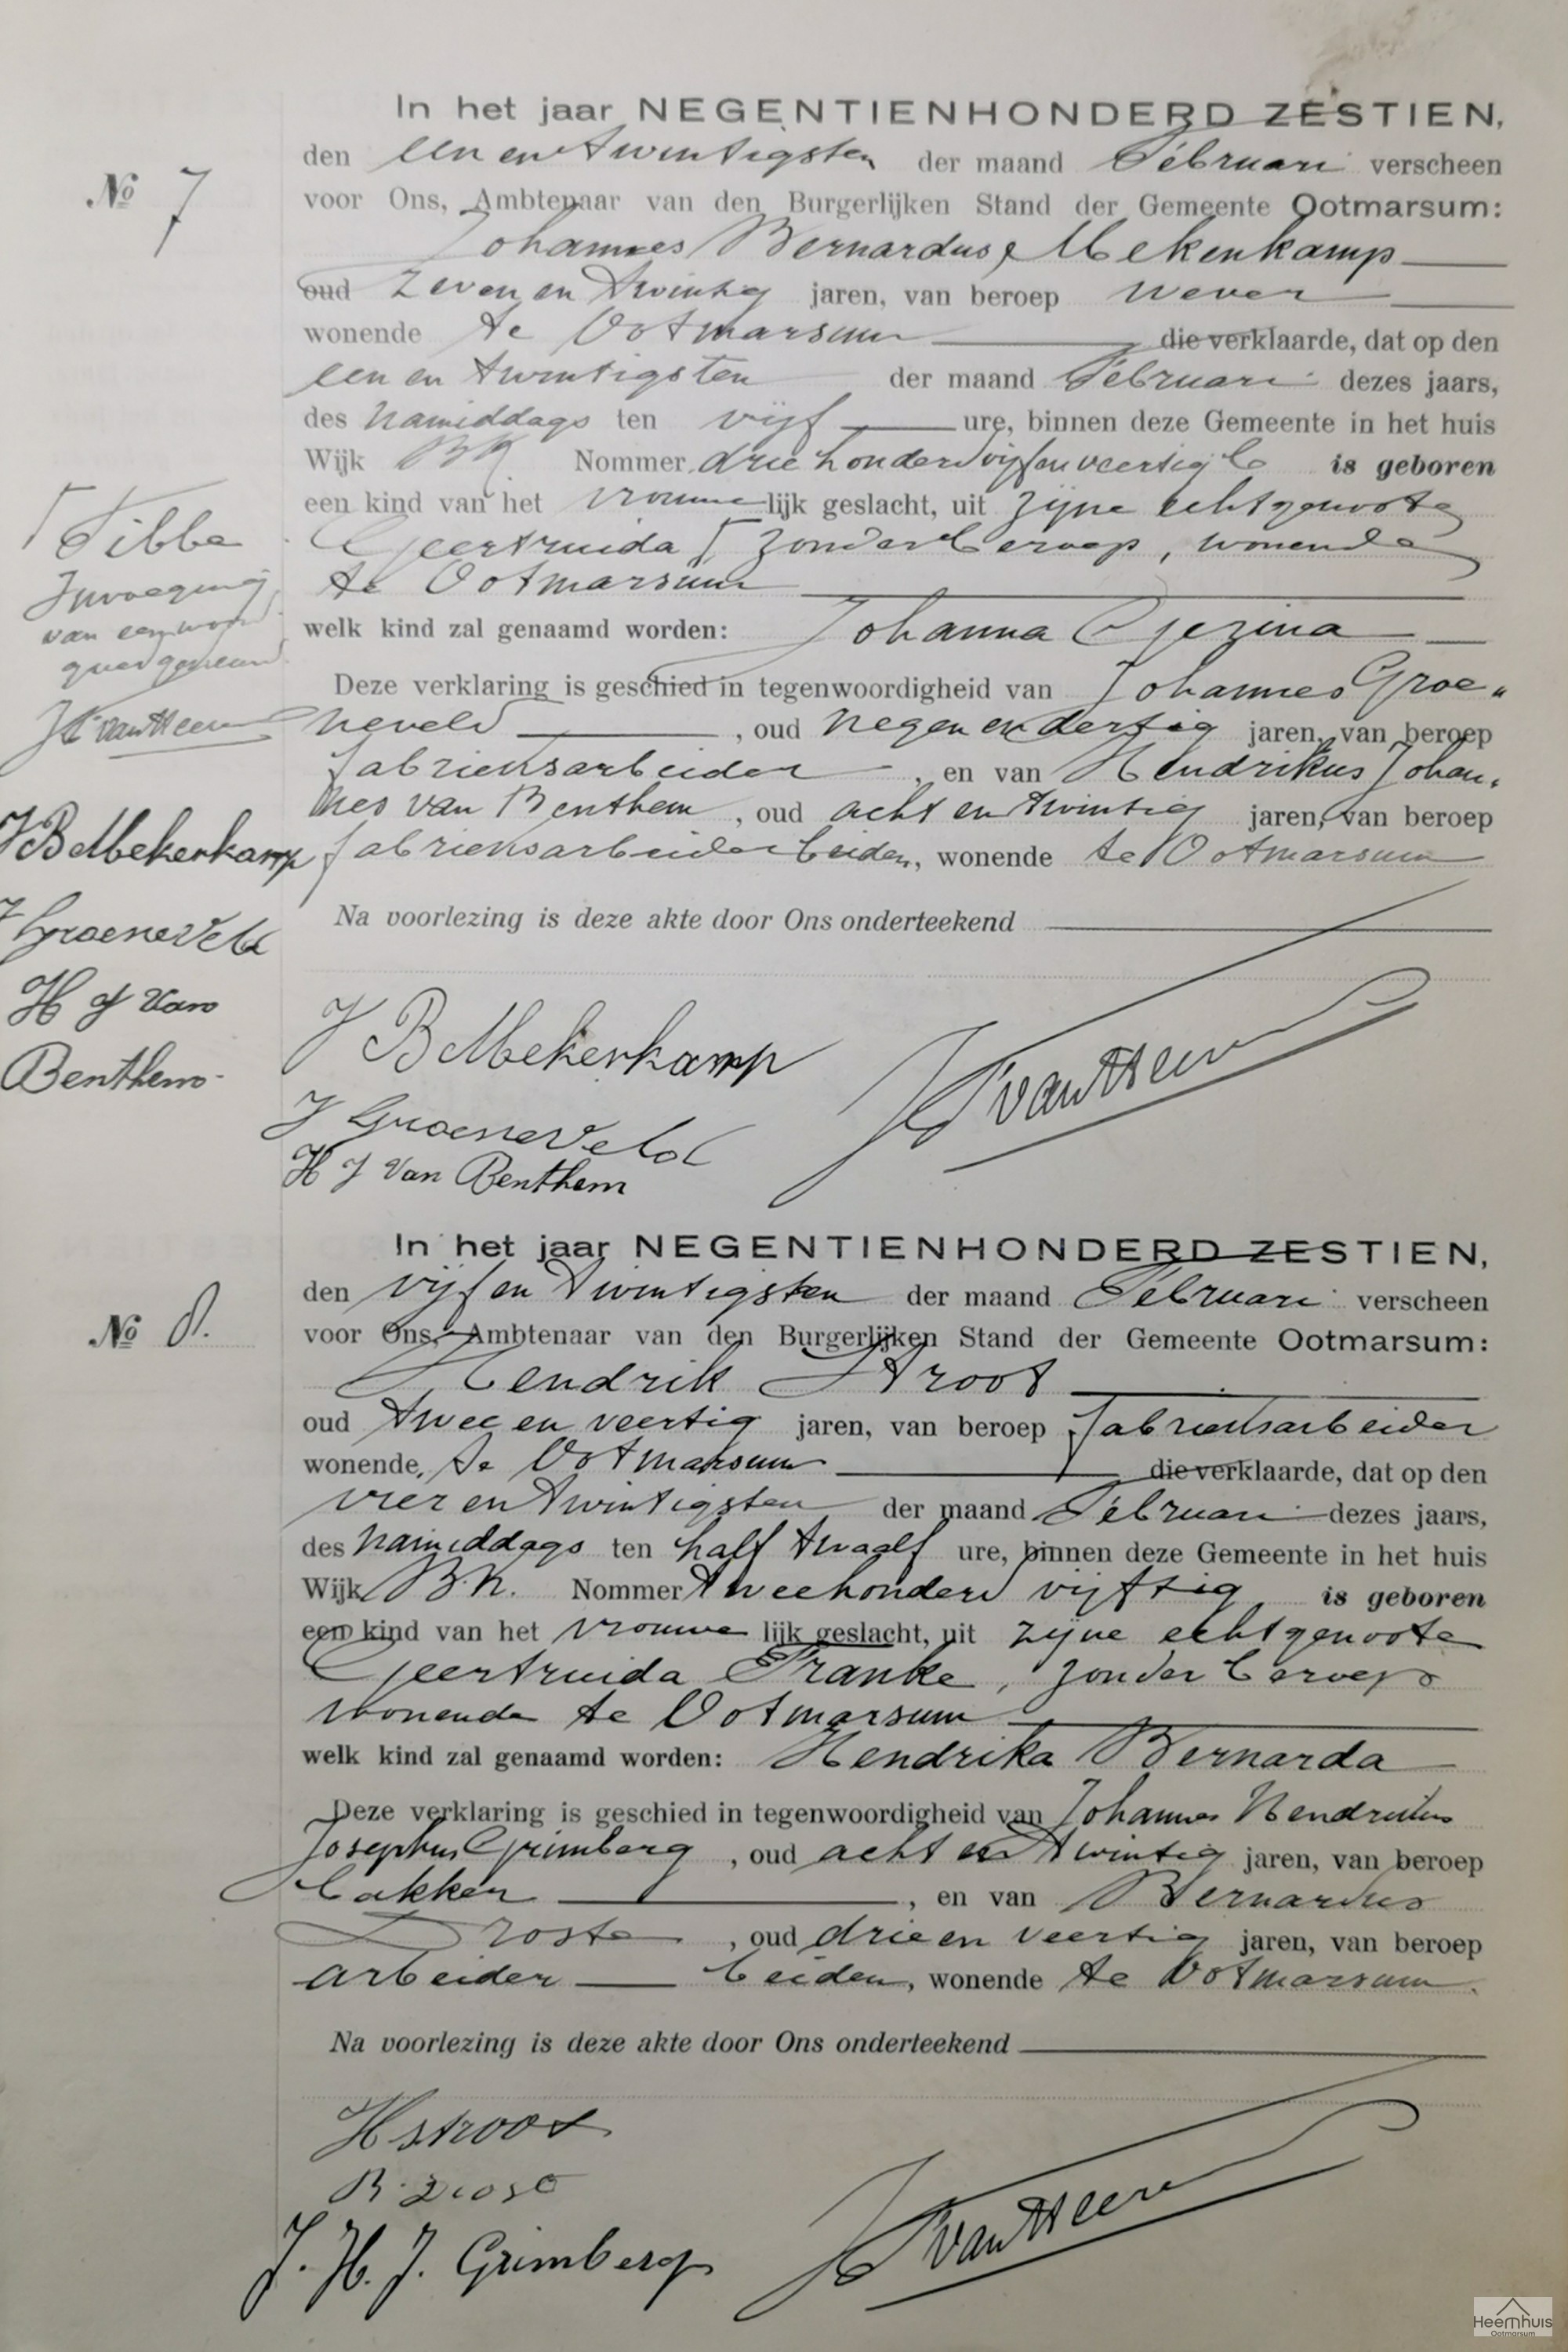 In het jaar NEGENTIENHONDERD ZESTIEN,
den een en twintigsten der maand Februari verscheen
No 7
voor Ons, Ambtenaar van den Burgerlijken Stand der Gemeente Ootmarsum:
Johannes Bernardus Mekenkamp
oud zeven en twintig jaren, van beroep wever
wonende te Ootmarsum die verklaarde, dat op den
een en twintigsten der maand Februari dezes jaars,
des namiddags ten vijf ure, binnen deze Gemeente in het huis
Wijk BK Nommer driehonderdvijfenveertig C is geboren
een kind van het vrouwelijk geslacht, uit zijne echtgenoote
Geertruida zonder beroep, wonende
te Ootmarsum
welk kind zal genaamd worden: Johanna Gezina
Deze verklaring is geschied in tegenwoordigheid van Johannes Groe-
neveld, oud negen en dertig jaren, van beroep
fabrieksarbeider, en van Hendrikus Johan-
nes van Benthem, oud acht en twintig jaren, van beroep
fabrieksarbeider beiden, wonende te Ootmarsum
Na voorlezing is deze akte door Ons onderteekend
Tibbe
Invoeging
van een woord
goedgekeurd
JBMekenkamp
J Groeneveld
H J Van
Benthem
J B Mekenkamp
J Groeneveld
H J Van Benthem
In het jaar NEGENTIENHONDERD ZESTIEN,
den vijf en twintigsten der maand Februari verscheen
No 8.
voor Ons, Ambtenaar van den Burgerlijken Stand der Gemeente Ootmarsum:
Hendrik Stroot
oud twee en veertig jaren, van beroep fabrieksarbeider
wonende te Ootmarsum die verklaarde, dat op den
vier en twintigsten der maand Februari dezes jaars,
des namiddags ten half twaalf ure, binnen deze Gemeente in het huis
Wijk B.K. Nommer tweehonderd vijftig is geboren
een kind van het vrouwelijk geslacht, uit zijne echtgenoote
Geertruida Franke, zonder beroep
wonende te Ootmarsum
welk kind zal genaamd worden: Hendrika Bernarda
Deze verklaring is geschied in tegenwoordigheid van Johannes Hendrikus
Josephus Grimberg, oud acht en twintig jaren, van beroep
bakker, en van Bernardus
Droste, oud drie en veertig jaren, van beroep
arbeider beiden, wonende te Ootmarsum.
Na voorlezing is deze akte door Ons onderteekend
H stroot
B. Drost
J. H. J. Grimberg
Heemhuis
Ootmarsum